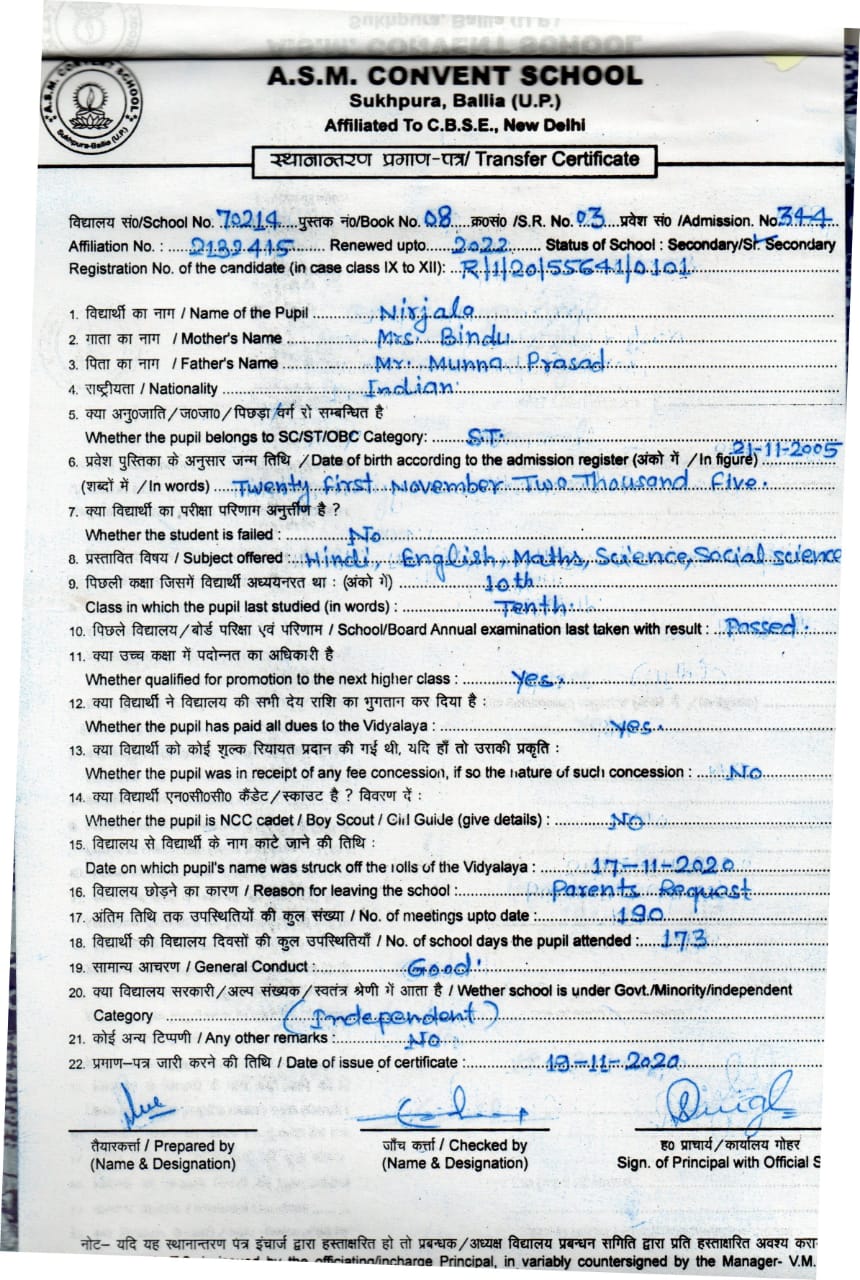 A.S.M. CONVENT SCHOOL
Sukhpura, Ballia (U.P.)
A.S.M. CONVENT SCHOOL
Sukhpura, Ballia (U.P.)
Affiliated To C.B.S.E., New Delhi
स्थानान्तरण प्रमाण-पत्र/ Transfer Certificate
विद्यालय सं0/School No. 70214 पुस्तक नं0/Book No. 08 क्र0सं0 /S.R. No. 03 प्रवेश सं0 /Admission. No. 344
Affiliation No. : 2132415 Renewed upto 2022 Status of School : Secondary/Sr. Secondary
Registration No. of the candidate (in case class IX to XII): R/1/20/55641/0101
1. विद्यार्थी का नाम / Name of the Pupil Nirjala
2. माता का नाम / Mother's Name Mrs. Bindu
3. पिता का नाम / Father's Name Mr. Munna Prasad
4. राष्ट्रीयता / Nationality Indian
5. क्या अनु0जाति/ज0जा0/पिछड़ा वर्ग से सम्बन्धित है
Whether the pupil belongs to SC/ST/OBC Category: S.T.
6. प्रवेश पुस्तिका के अनुसार जन्म तिथि /Date of birth according to the admission register (अंको में /In figure) 21-11-2005
(शब्दों में /In words) Twenty first November Two Thousand Five.
7. क्या विद्यार्थी का परीक्षा परिणाम अनुर्त्तीण है ?
Whether the student is failed : No
8. प्रस्तावित विषय / Subject offered : Hindi, English, Maths, Science, Social science
9. पिछली कक्षा जिसमें विद्यार्थी अध्ययनरत था : (अंको में) 10th
Class in which the pupil last studied (in words) : Tenth.
10. पिछले विद्यालय/बोर्ड परिक्षा एवं परिणाम / School/Board Annual examination last taken with result : Passed.
11. क्या उच्च कक्षा में पदोन्नत का अधिकारी है
Whether qualified for promotion to the next higher class : Yes.
12. क्या विद्यार्थी ने विद्यालय की सभी देय राशि का भुगतान कर दिया है :
Whether the pupil has paid all dues to the Vidyalaya : Yes.
13. क्या विद्यार्थी को कोई शुल्क रियायत प्रदान की गई थी, यदि हाँ तो उसकी प्रकृति :
Whether the pupil was in receipt of any fee concession, if so the nature of such concession : No
14. क्या विद्यार्थी एन0सी0सी0 कैंडेट/स्काउट है ? विवरण दें :
Whether the pupil is NCC cadet / Boy Scout / Girl Guide (give details) : No
15. विद्यालय से विद्यार्थी के नाम काटे जाने की तिथि :
Date on which pupil's name was struck off the rolls of the Vidyalaya : 17-11-2020
16. विद्यालय छोड़ने का कारण / Reason for leaving the school : Parents Request
17. अंतिम तिथि तक उपस्थितियों की कुल संख्या / No. of meetings upto date : 190
18. विद्यार्थी की विद्यालय दिवसों की कुल उपस्थितियाँ / No. of school days the pupil attended : 173
19. सामान्य आचरण / General Conduct : Good
20. क्या विद्यालय सरकारी/अल्प संख्यक/स्वतंत्र श्रेणी में आता है / Wether school is under Govt./Minority/independent
Category (Independent)
21. कोई अन्य टिप्पणी / Any other remarks : No
22. प्रमाण-पत्र जारी करने की तिथि / Date of issue of certificate : 19-11-2020
तैयारकर्त्ता / Prepared by जाँच कर्त्ता / Checked by ह0 प्राचार्य/कार्यालय मोहर
(Name & Designation) (Name & Designation) Sign. of Principal with Official S
नोट- यदि यह स्थानान्तरण पत्र इंचार्ज द्वारा हस्ताक्षरित हो तो प्रबन्धक/अध्यक्ष विद्यालय प्रबन्धन समिति द्वारा प्रति हस्ताक्षरित अवश्य करा
officiating/incharge Principal, in variably countersigned by the Manager- V.M.